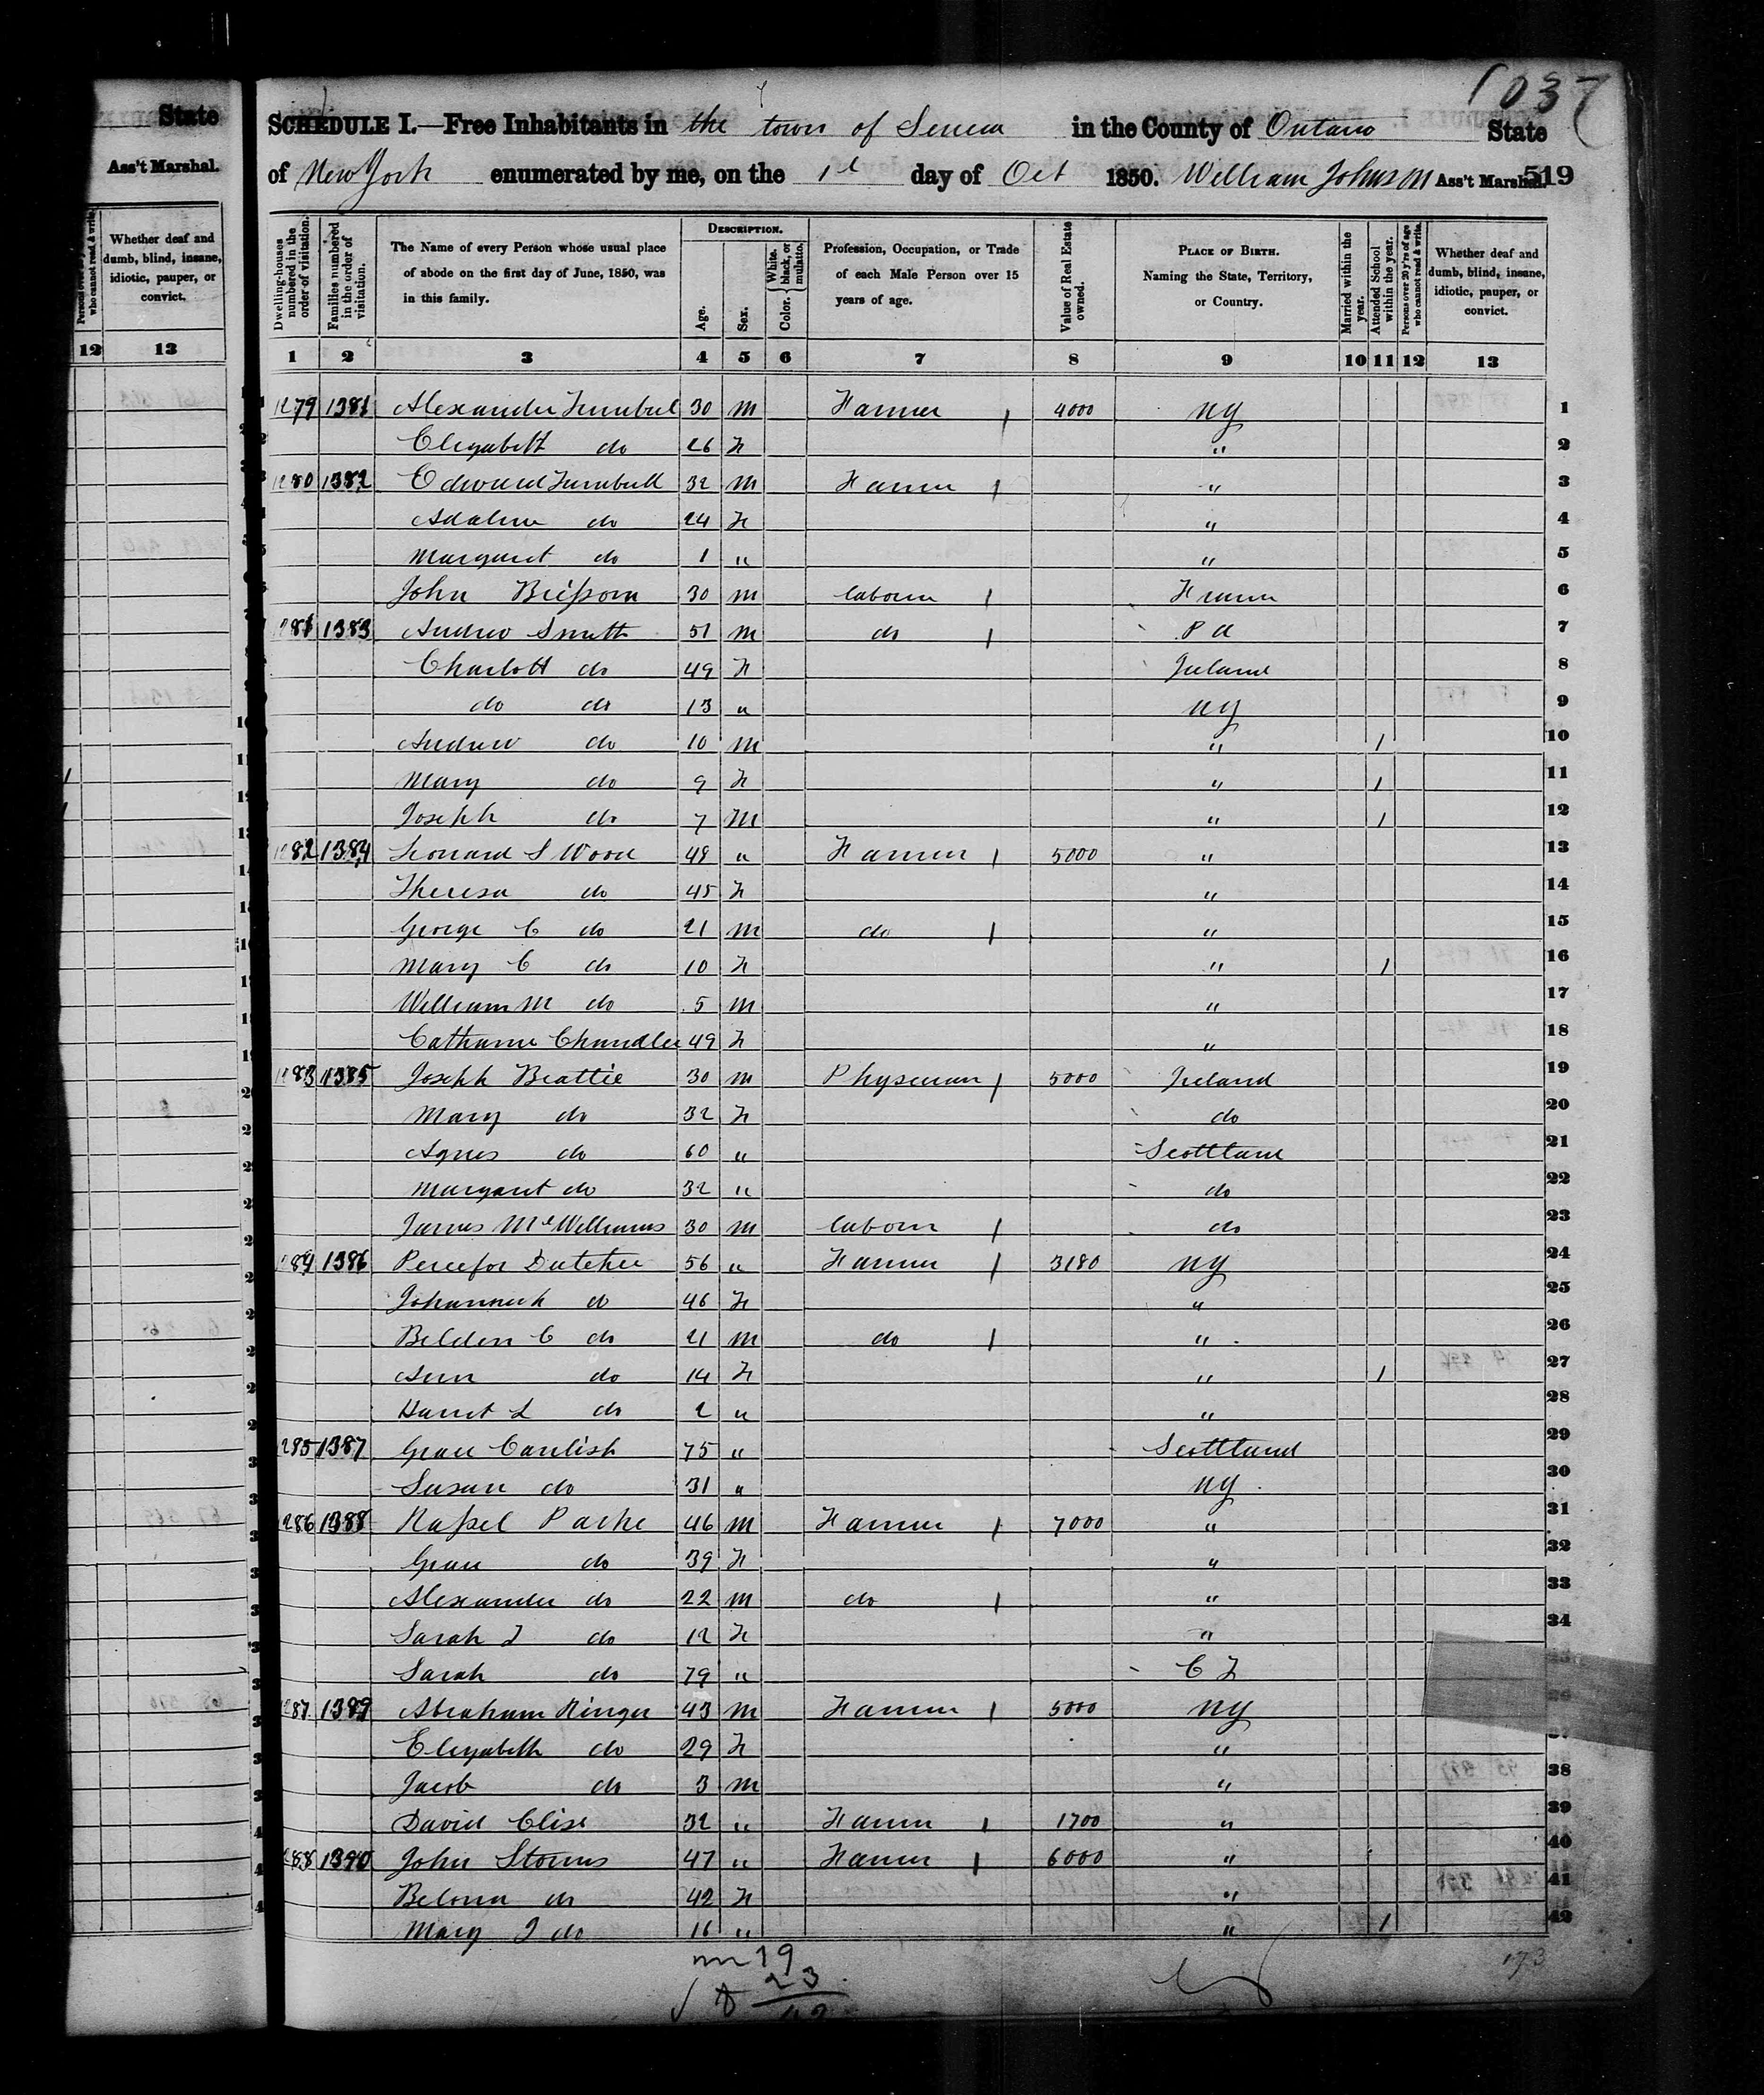 State
Ass't Marshal.
Persons over 20 y'rs of age who cannot read & write.
Whether deaf and dumb, blind, insane, idiotic, pauper, or convict.
12 13
1037
SCHEDULE I.—Free Inhabitants in the town of Seneca in the County of Ontario State
of New York enumerated by me, on the 1st day of Oct 1850. William Johnson Ass't Marshal. 519
Dwelling-houses numbered in the order of visitation.
Families numbered in the order of visitation.
The Name of every Person whose usual place of abode on the first day of June, 1850, was in this family.
DESCRIPTION.
Age.
Sex.
Color. White, black, or mulatto.
Profession, Occupation, or Trade of each Male Person over 15 years of age.
Value of Real Estate owned.
PLACE OF BIRTH. Naming the State, Territory, or Country.
Married within the year.
Attended School within the year.
Persons over 20 y'rs of age who cannot read & write.
Whether deaf and dumb, blind, insane, idiotic, pauper, or convict.
1 2 3 4 5 6 7 8 9 10 11 12 13
1279 1381 Alexander Turnbul 30 m Farmer 1 4000 NY 1
Elizabett do 26 F " 2
1280 1382 Edward Turnbull 32 m Farmer 1 " 3
Adaline do 24 F " 4
Margaret do 1 " " 5
John 30 m laborer 1 6
1281 1383 Andrew Smith 51 m do 1 Pa 7
Charlott do 49 F Ireland 8
do do 13 " NY 9
Andrew do 10 m " 1 10
Mary do 9 F " 1 11
Joseph do 7 m " 1 12
1282 1384 Leonard S Wood 49 " Farmer 1 5000 " 13
Theresa do 45 F " 14
George C do 21 m do 1 " 15
Mary C do 10 F " 1 16
William M do 5 m " 17
Catharine Chandler 49 F " 18
1283 1385 Joseph Beattie 30 m Physician 1 5000 Ireland 19
Mary do 32 F do 20
Agnes do 60 " Scottland 21
Margaret do 32 " do 22
James McWilliams 30 m laborer 1 do 23
1284 1386 Dutcher 56 " Farmer 1 3180 NY 24
Johannah do 46 F " 25
Belden C do 21 m do 1 " 26
Ann do 14 F " 1 27
Harriet L do 2 " " 28
1285 1387 Grace 75 " Scottland 29
Susan do 31 " NY 30
1286 1388 46 m Farmer 1 7000 " 31
Grace do 39 F " 32
Alexander do 22 m do 1 " 33
Sarah J do 12 F " 34
Sarah do 79 " C T
1287 1389 Abraham Ringer 43 m Farmer 1 5000 NY
Elizabeth do 29 F "
Jacob do 3 m " 38
David Clise 32 " Farmer 1 1700 " 39
1288 1390 John Storms 47 " Farmer 1 6000 " 40
do 42 F " 41
Mary J do 16 " " 1 42
m 19
23
42
173